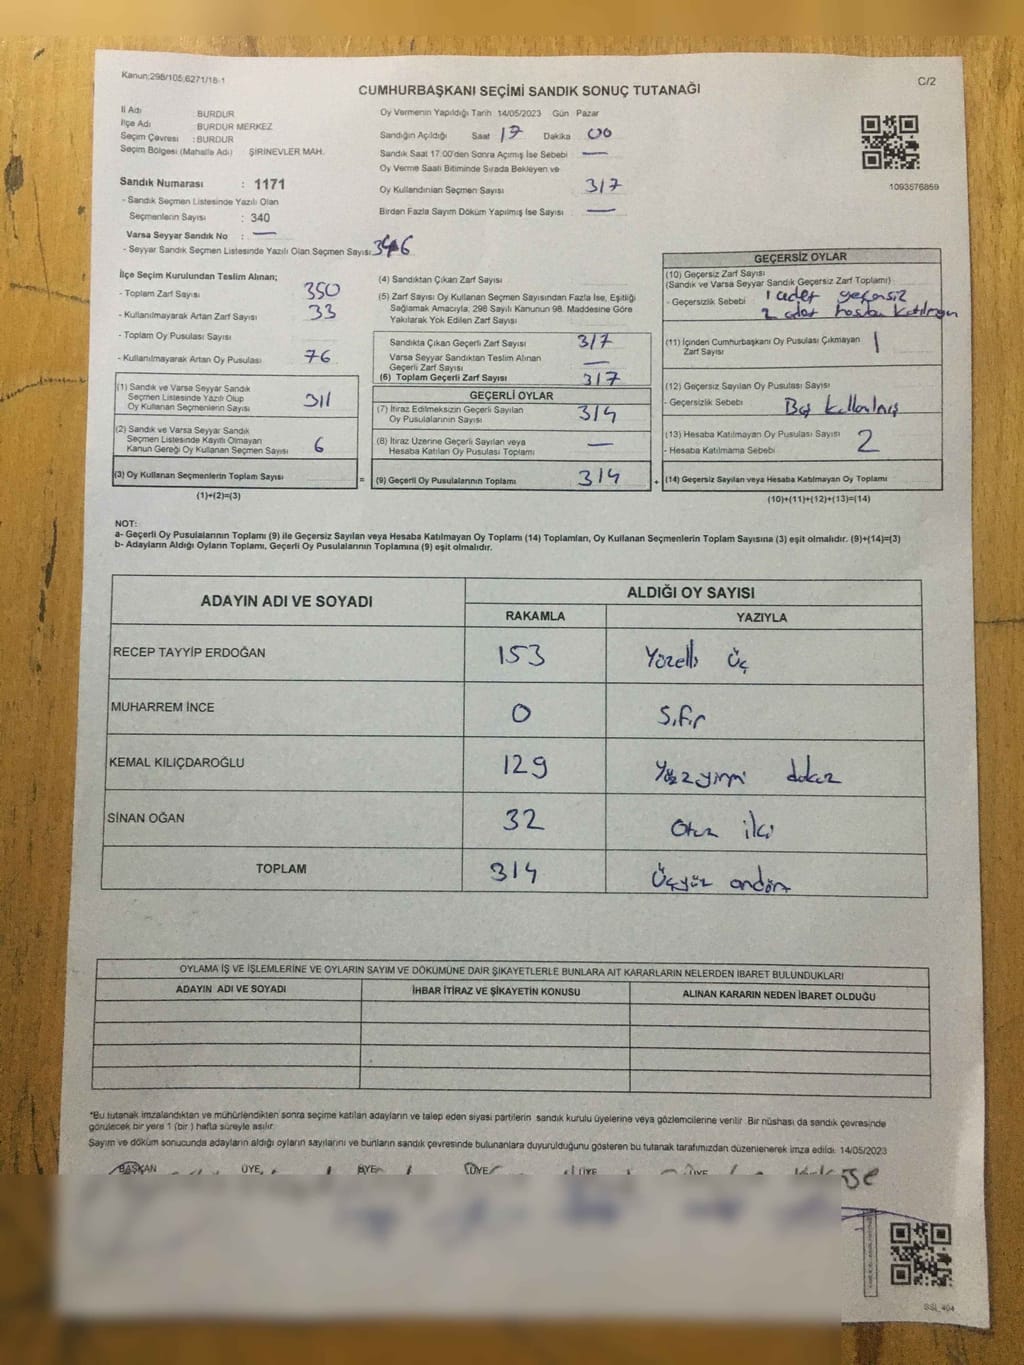 Kanun:298/105,6271/18-1
C/2
CUMHURBAŞKANI SEÇİMİ SANDIK SONUÇ TUTANAĞI
İl Adı BURDUR
İlçe Adı BURDUR MERKEZ
Seçim Çevresi : BURDUR
Seçim Bölgesi (Mahalle Adı) ŞİRİNEVLER MAH.
Sandık Numarası : 1171
- Sandık Seçmen Listesinde Yazılı Olan
Seçmenlerin Sayısı : 340
Varsa Seyyar Sandık No : —
- Seyyar Sandık Seçmen Listesinde Yazılı Olan Seçmen Sayısı:
Oy Vermenin Yapıldığı Tarih 14/05/2023 Gün Pazar
Sandığın Açıldığı Saat 17 Dakika 00
Sandık Saat 17.00'den Sonra Açımış İse Sebebi —
Oy Verme Saati Bitiminde Sırada Bekleyen ve
Oy Kullandınlan Seçmen Sayısı 317
Birden Fazla Sayım Döküm Yapılmış İse Sayısı —
1093576859
İlçe Seçim Kurulundan Teslim Alınan;
- Toplam Zarf Sayısı 350
- Kullanılmayarak Artan Zarf Sayısı 33
- Toplam Oy Pusulası Sayısı
- Kullanılmayarak Artan Oy Pusulası 76
(1) Sandık ve Varsa Seyyar Sandık
Seçmen Listesinde Yazılı Olup
Oy Kullanan Seçmenlerin Sayısı 311
(2) Sandık ve Varsa Seyyar Sandık
Seçmen Listesinde Kayıtlı Olmayan
Kanun Gereği Oy Kullanan Seçmen Sayısı 6
(3) Oy Kullanan Seçmenlerin Toplam Sayısı
(1)+(2)=(3)
=
(4) Sandıktan Çıkan Zarf Sayısı
(5) Zarf Sayısı Oy Kullanan Seçmen Sayısından Fazla İse, Eşitliği
Sağlamak Amacıyla, 298 Sayılı Kanunun 98. Maddesine Göre
Yakılarak Yok Edilen Zarf Sayısı
Sandıkta Çıkan Geçerli Zarf Sayısı 317
Varsa Seyyar Sandıktan Teslim Alınan
Geçerli Zarf Sayısı —
(6) Toplam Geçerli Zarf Sayısı 317
GEÇERLİ OYLAR
(7) İtiraz Edilmeksizin Geçerli Sayılan
Oy Pusulalarının Sayısı 314
(8) İtiraz Üzerine Geçerli Sayılan veya
Hesaba Katılan Oy Pusulası Toplamı —
(9) Geçerli Oy Pusulalarının Toplamı 314
+
GEÇERSİZ OYLAR
(10) Geçersiz Zarf Sayısı
(Sandık ve Varsa Seyyar Sandık Geçersiz Zarf Toplamı)
- Geçersizlik Sebebi 1 adet geçersiz
2 adet hesaba katılmayan
(11) İçinden Cumhurbaşkanı Oy Pusulası Çıkmayan
Zarf Sayısı 1
(12) Geçersiz Sayılan Oy Pusulası Sayısı
- Geçersizlik Sebebi Boş kullanılmış
(13) Hesaba Katılmayan Oy Pusulası Sayısı 2
- Hesaba Katılmama Sebebi
(14) Geçersiz Sayılan veya Hesaba Katılmayan Oy Toplamı
(10)+(11)+(12)+(13)=(14)
NOT:
a- Geçerli Oy Pusulalarının Toplamı (9) ile Geçersiz Sayılan veya Hesaba Katılmayan Oy Toplamı (14) Toplamları, Oy Kullanan Seçmenlerin Toplam Sayısına (3) eşit olmalıdır. (9)+(14)=(3)
b- Adayların Aldığı Oyların Toplamı, Geçerli Oy Pusulalarının Toplamına (9) eşit olmalıdır.
ADAYIN ADI VE SOYADI ALDIĞI OY SAYISI
RAKAMLA YAZIYLA
RECEP TAYYİP ERDOĞAN 153 Yüzelli üç
MUHARREM İNCE 0 Sıfır
KEMAL KILIÇDAROĞLU 129 Yüz yirmi dokuz
SİNAN OĞAN 32 Otuz iki
TOPLAM 314 Üçyüz ondört
OYLAMA İŞ VE İŞLEMLERİNE VE OYLARIN SAYIM VE DÖKÜMÜNE DAİR ŞİKAYETLERLE BUNLARA AİT KARARLARIN NELERDEN İBARET BULUNDUKLARI
ADAYIN ADI VE SOYADI İHBAR İTİRAZ VE ŞİKAYETİN KONUSU ALINAN KARARIN NEDEN İBARET OLDUĞU
*Bu tutanak imzalandıktan ve mühürlendikten sonra seçime katılan adayların ve talep eden siyasi partilerin sandık kurulu üyelerine veya gözlemcilerine verilir. Bir nüshası da sandık çevresinde
görülecek bir yere 1 (bir) hafta süreyle asılır.
Sayım ve döküm sonucunda adayların aldığı oyların sayılarını ve bunların sandık çevresinde bulunanlara duyurulduğunu gösteren bu tutanak tarafımızdan düzenlenerek imza edildi. 14/05/2023
BAŞKAN ÜYE ÜYE ÜYE ÜYE ÜYE